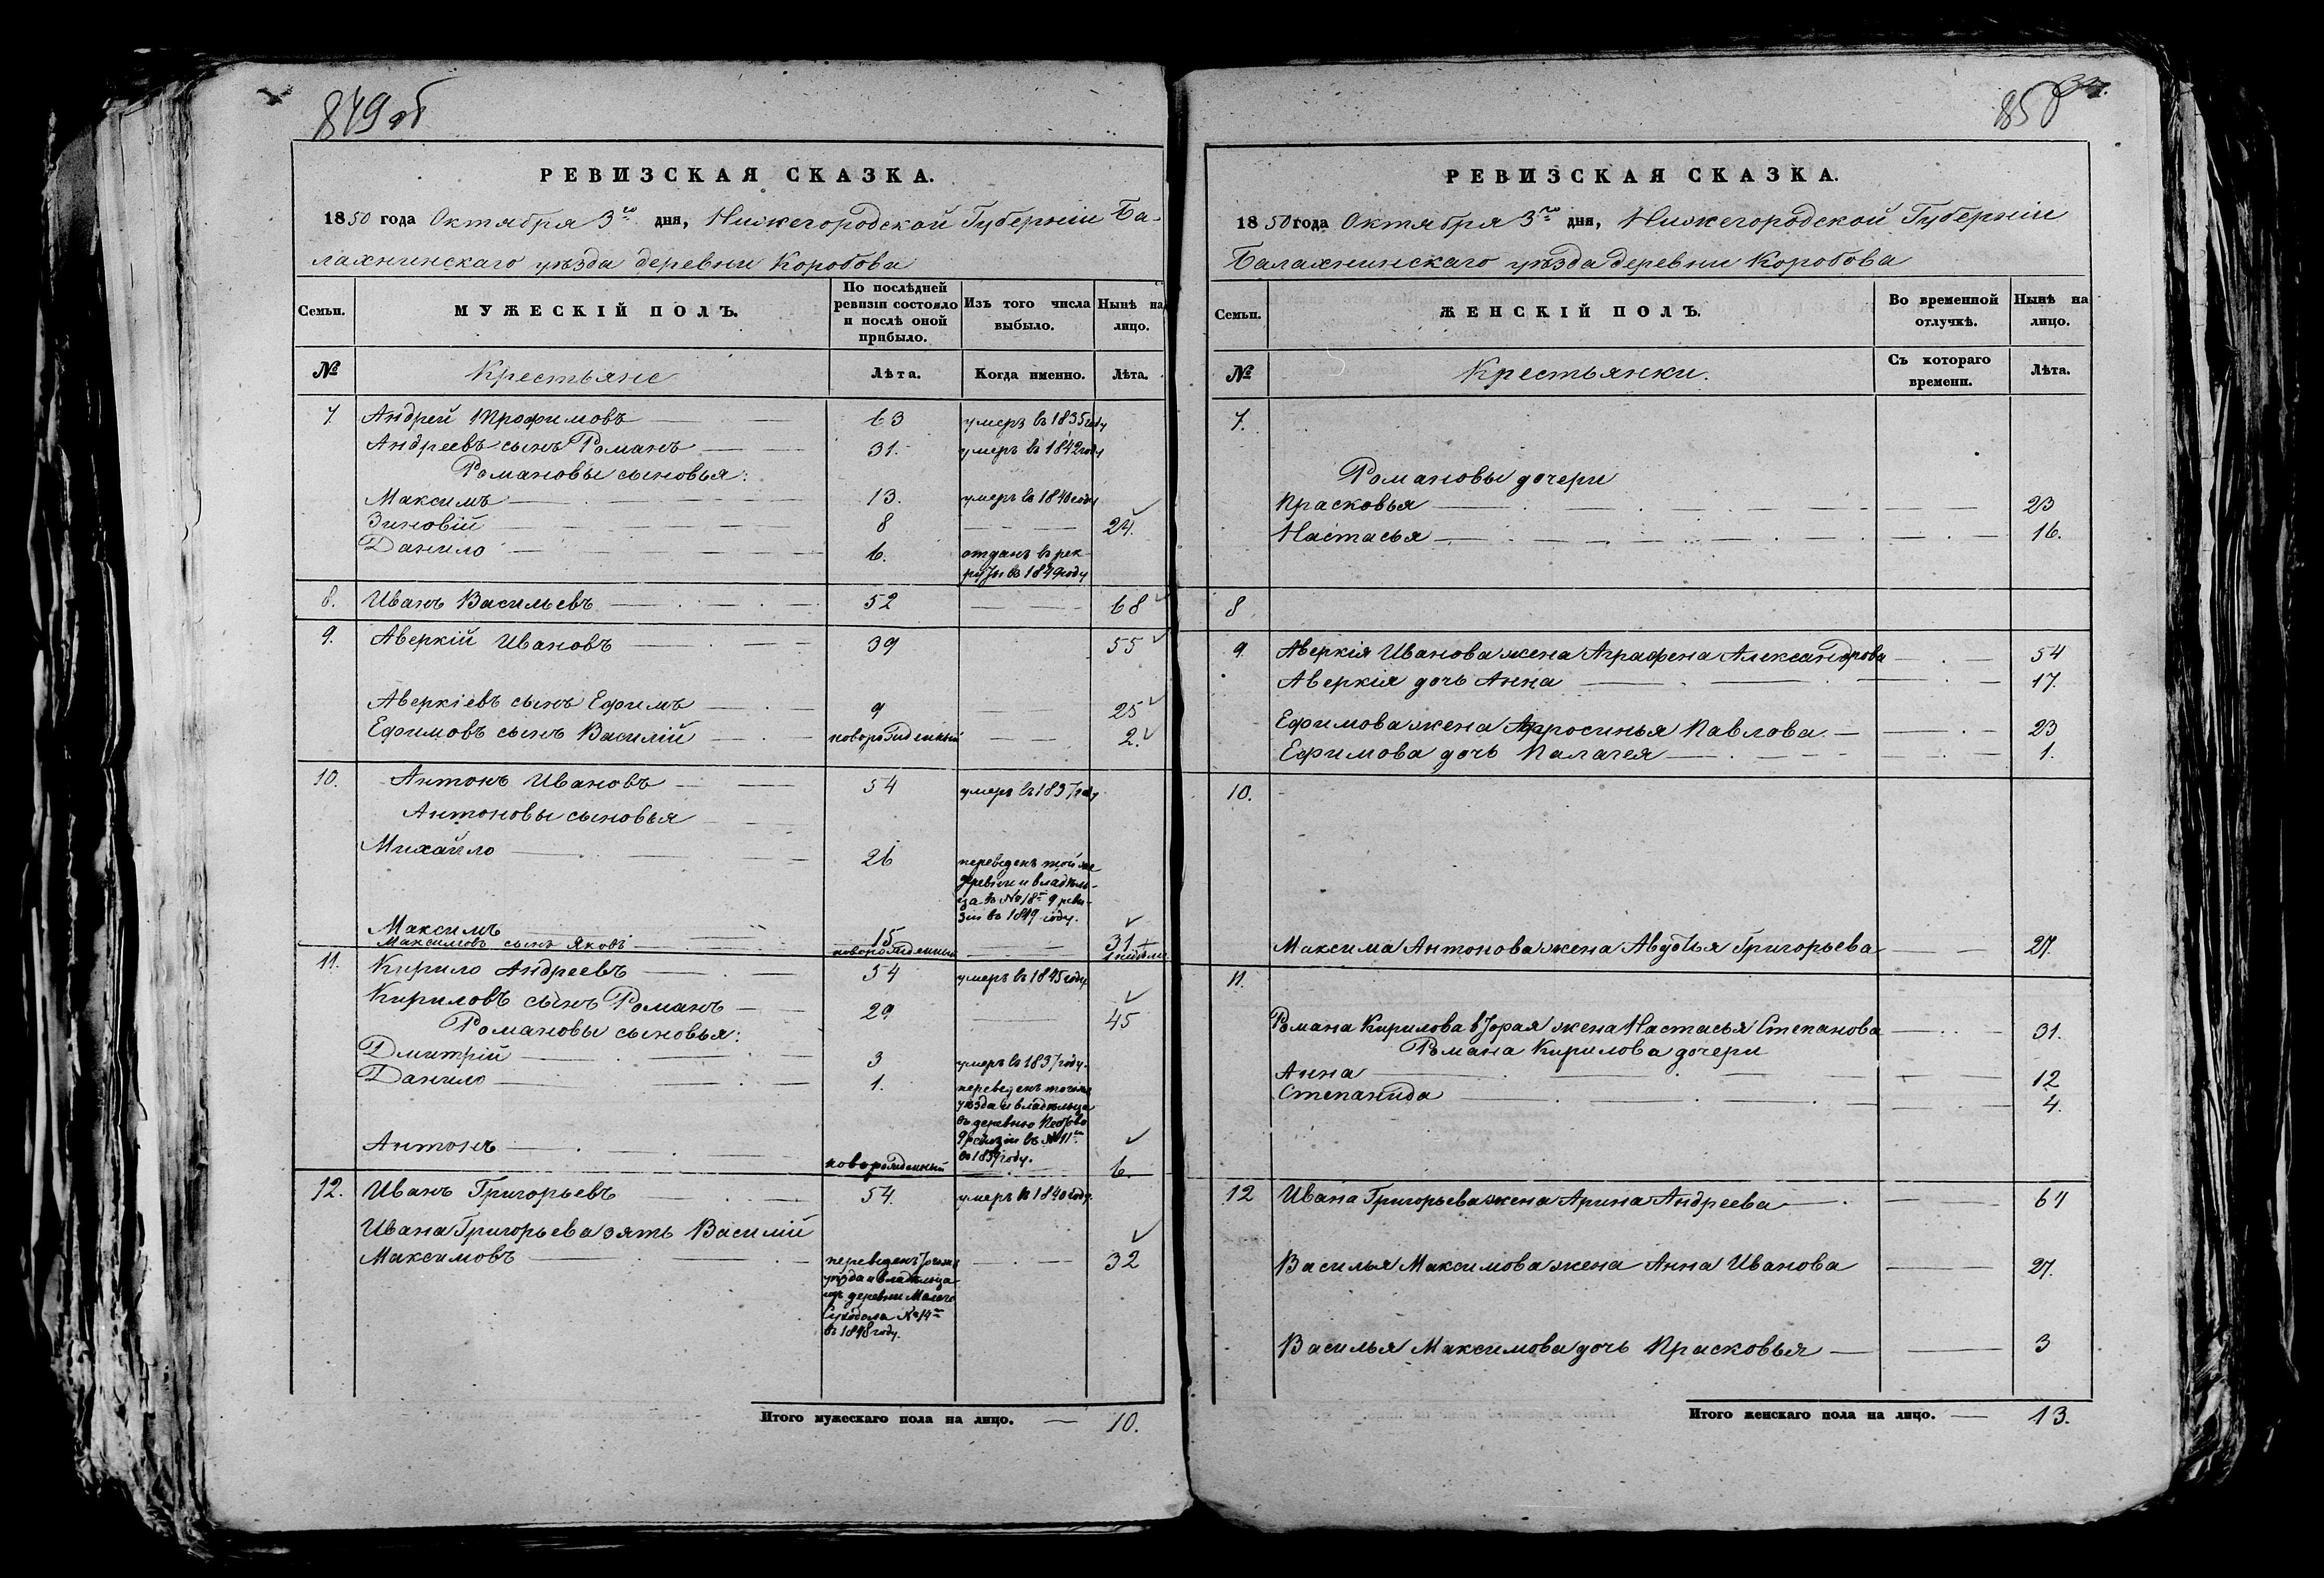 849 об
РЕВИЗСКАЯ СКАЗКА.
1850 года Октября 3го дня, Нижегородской Губерніи Ба-
лахнинскаго уѣзда деревни Коробова
Семьи.
МУЖЕСКІЙ ПОЛЪ.
По послѣдней ревизіи состояло и послѣ оной прибыло.
Изъ того числа выбыло.
Нынѣ на лицо.
№ Крестьяне Лѣта. Когда именно. Лѣта.
7. Андрей Трофимовъ 63 умеръ въ 1835 году
Андреевъ сынъ Романъ 31. умеръ въ 1842 году
Романовы сыновья:
Максимъ 13. умеръ въ 1840 году
Зиновій 8 24.
Данило 6. отданъ въ рек-
руты въ 1849 году
8. Иванъ Васильевъ 52 68
9. Аверкій Ивановъ 39 55
Аверкіевъ сынъ Ефимъ 9 25
Ефимовъ сынъ Василій новорожденный 2.
10. Антонъ Ивановъ 54 умеръ въ 1837 году
Антоновы сыновья
Михайло 26 переведенъ той же
деревни и владѣль-
ца въ № 18й 9 реви-
зіи въ 1849 году.
Максимъ 15 31
Максимовъ сынъ Яковъ новорожденный
11. Кирило Андреевъ 54 умеръ въ 1845 году
Кириловъ сынъ Романъ 29 45
Романовы сыновья:
Дмитрій 3 умеръ въ 1837 году.
Данило 1. переведенъ того же
уѣзда и владѣльца
въ деревню
9 ревизіи въ № 11й
въ 1839 году.
Антонъ новорожденный 6.
12. Иванъ Григорьевъ 54. умеръ въ 1840 году.
Ивана Григорьева зять Василій
Максимовъ переведенъ тогоже 32
уѣзда и владѣльца
изъ деревни Малаго
Суходола № 14й
въ 1848 году.
Итого мужескаго пола на лицо. 10.
850
РЕВИЗСКАЯ СКАЗКА.
1850 года Октября 3го дня, Нижегородской Губерніи
Балахнинскаго уѣзда деревни Коробова
Семьи.
ЖЕНСКІЙ ПОЛЪ.
Во временной отлучкѣ.
Нынѣ на лицо.
№ Крестьянки. Съ котораго времени. Лѣта.
7.
Романовы дочери
Прасковья 23
Настасья 16.
8
9. Аверкія Иванова жена Аграфена Александрова 54
Аверкія дочь Анна 17.
Ефимова жена Афросинья Павлова 23
Ефимова дочь Палагея 1.
10.
Максима Антонова жена Авдотья Григорьева 27.
11.
Романа Кирилова вторая жена Настасья Степанова 31.
Романа Кирилова дочери
Анна 12
Степанида 4.
12 Ивана Григорьева жена Арина Андреева 64
Василья Максимова жена Анна Иванова 27.
Василья Максимова дочь Прасковья 3
Итого женскаго пола на лицо. 13.